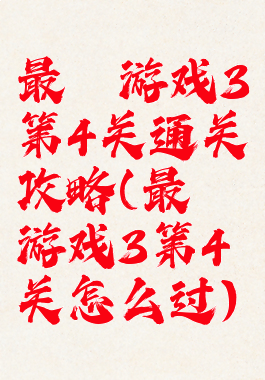 最 游戏3
第4关通关
攻略(最
游戏3第4
关怎么过)